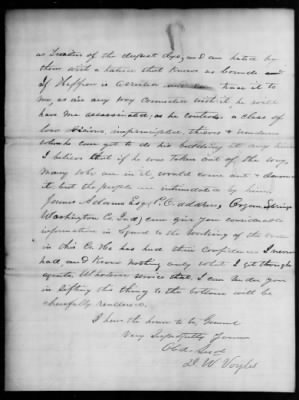 2
as Treason of the deepest dye, and am hated by
them with a hatred that knows no bounds and
if Heffren is arrested and they trace it to
me, as in any way connected with it, he will
have me assassinated, as he controls a class of
low villains, unprincipled, thieves & murderers
whom he can get to do his bidding at any time
I believe that if he was taken out of the way,
many who are in it, would come out & denounce
it, but the people are intimidated by him.
James Adams Esq (P.O. address, Organ Springs
Washington Co. Ind) can give you considerable
information in regard to the working of the
in this Co. He has had their confidence I never
had, and know nothing only what I get through
agents. Whatever service that I can render you
in sifting this thing to the bottom will be
cheerfully rendered.
I have the honor to be General
Very Respectfully Yours
Obdt Servt
D. W. Voyles